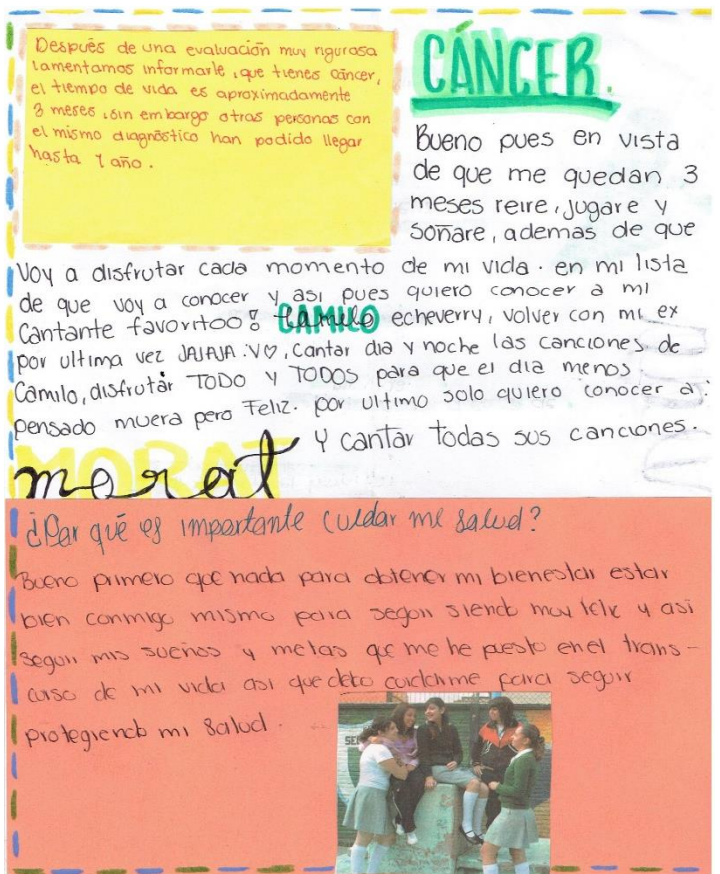 Después de una evaluación muy rigurosa
lamentamos informarle, que tienes cáncer,
el tiempo de vida es aproximadamente
3 meses, sin embargo otras personas con
el mismo diagnóstico han podido llegar
hasta 1 año.
CÁNCER.
Bueno pues en vista
de que me quedan 3
meses reire, jugare y
soñare, ademas de que
Voy a disfrutar cada momento de mi vida. en mi lista
de que voy a conocer y asi pues quiero conocer a mi
Cantante favoritoo! CAMILO echeverry, volver con mi ex
por ultima vez JAJAJA :V♡, Cantar dia y noche las canciones de
Camilo, disfrutar TODO y TODOS para que el dia menos
pensado muera pero Feliz. por ultimo solo quiero conocer a:
MORAT
morat y cantar todas sus canciones.
¿Por qué es importante cuidar mi salud?
Bueno primero que nada para obtener mi bienestar estar
bien conmigo mismo para seguir siendo muy feliz y asi
seguir mis sueños y metas que me he puesto en el trans-
curso de mi vida asi que debo cuidarme para seguir
protegiendo mi salud.